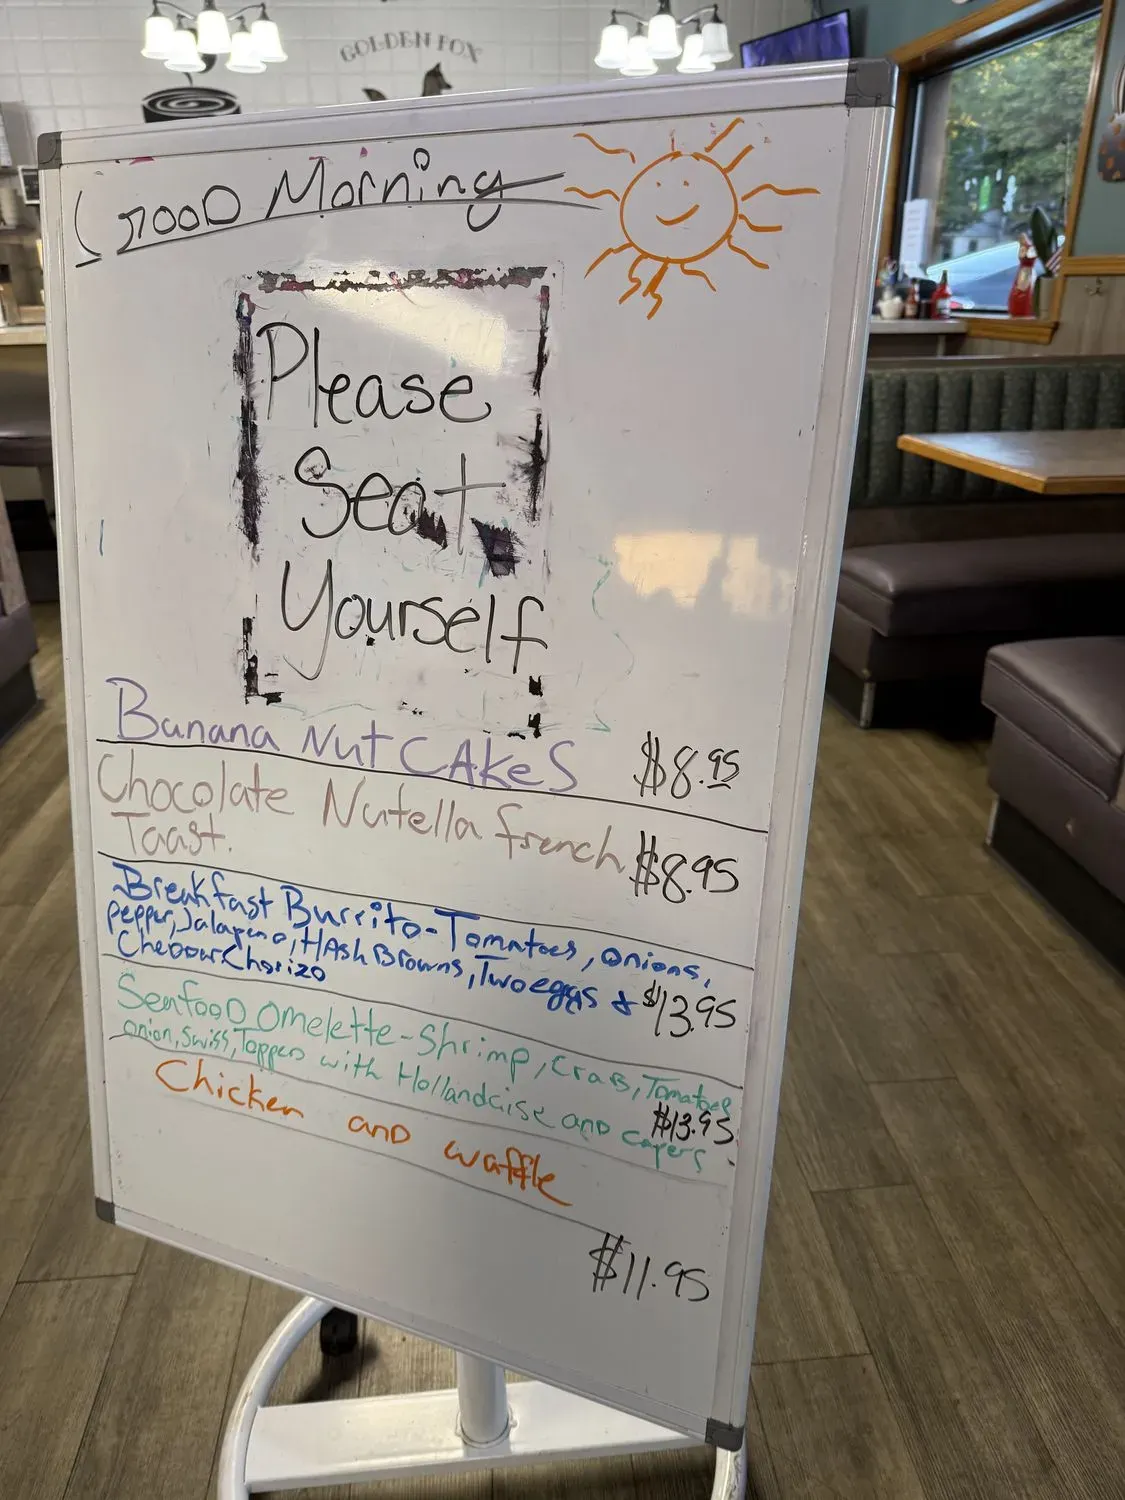 GOLDEN FOX
GOOD Morning
Please
Seat
Yourself
Banana Nut CAkeS $8.95
Chocolate Nutella french
Taast. $8.95
Breakfast Burrito-Tomatoes, onions,
pepper, Jalapeno, HAsh Browns, Two eggs &
CheDDar Chorizo $13.95
SeafooD omelette-Shrimp, CraB, Tomatoes
onion, Swiss, Toppeo with Hollandaise anD capers $13.95
Chicken anD waffle
$11.95